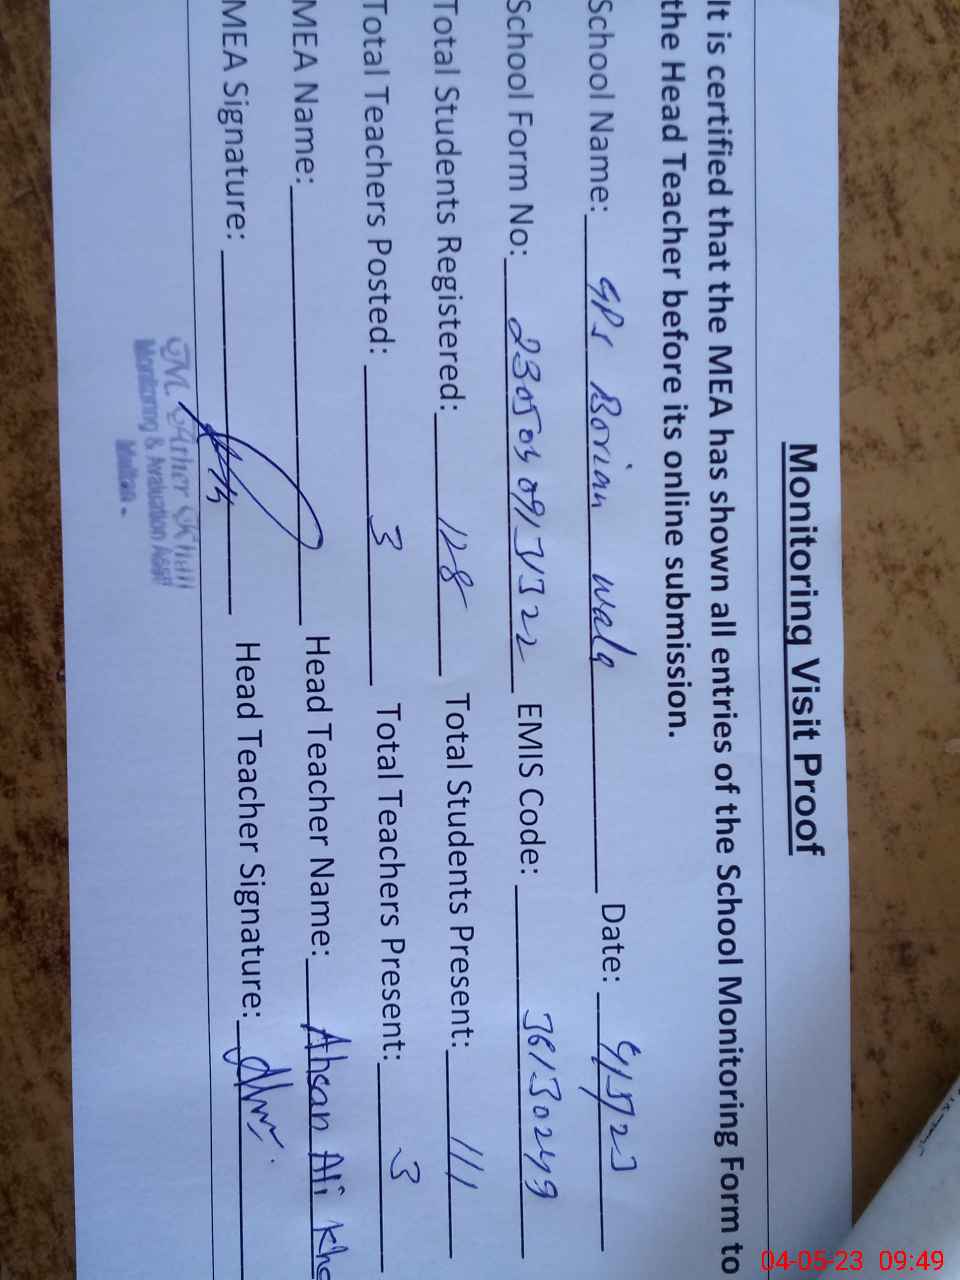 Monitoring Visit Proof
It is certified that the MEA has shown all entries of the School Monitoring Form to
the Head Teacher before its online submission.
School Name: GPS Borian wala Date: 4/5/23
School Form No: EMIS Code: 36130249
Total Students Registered: 128 Total Students Present: 111
Total Teachers Posted: 3 Total Teachers Present: 3
MEA Name: Head Teacher Name: Ahsan Ali Kha
MEA Signature: Head Teacher Signature:
M. Ather Khan
Monitoring & Evaluation Asstt
Multan.
04-05-23 09:49